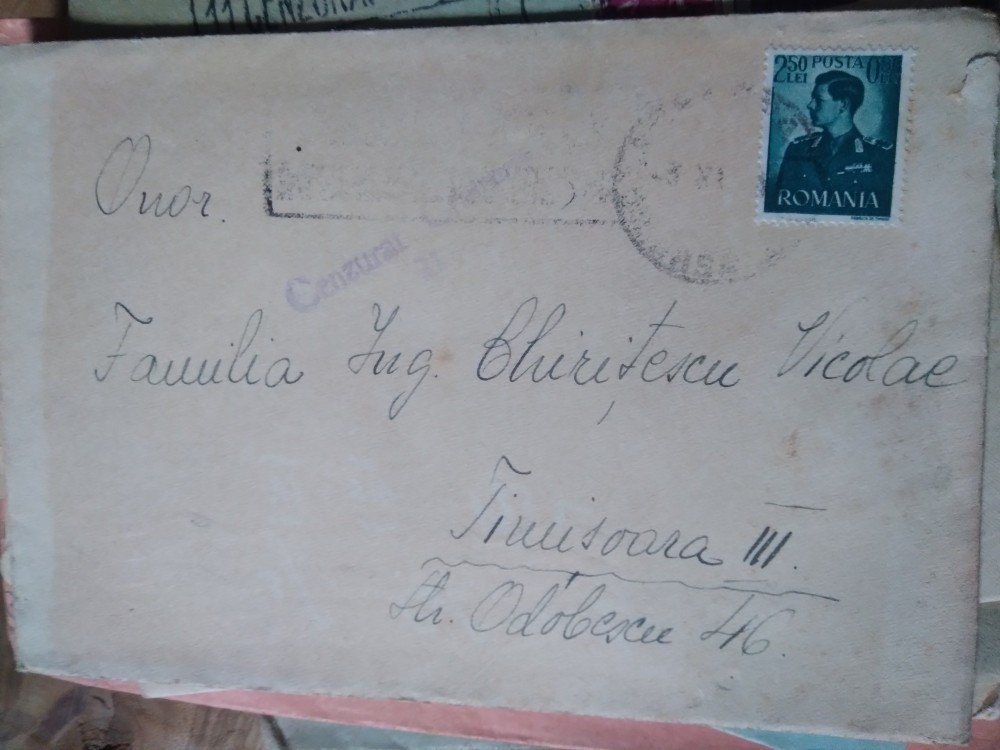 11 CENZURAT
2.50 LEI POSTA
ROMANIA
Onor.
Cenzurat
Familia Ing. Chirițescu Nicolae
Timisoara III.
Str. Odobescu 46.